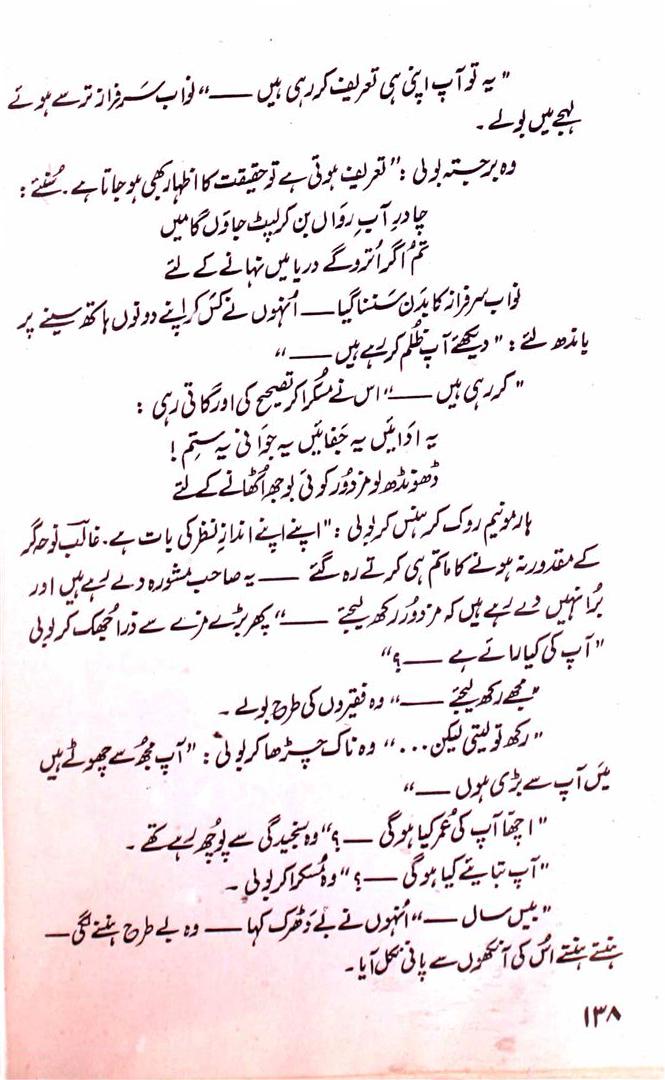 "یہ تو آپ اپنی ہی تعریف کر رہی ہیں ——" نواب سَرفراز ترسے ہوئے
لہجے میں بولے۔
وہ برجستہ بولی: "تعریف ہوتی ہے تو حقیقت کا اظہار بھی ہو جاتا ہے۔ سُنئے:
چادرِ آبِ رَواں بن کر لپٹ جاؤں گا میں
تُم اگر اُترو گے دریا میں نہانے کے لئے
نواب سرفراز کا بدَن سَنسنا گیا —— اُنہوں نے کَس کر اپنے دونوں ہاتھ سینے پر
باندھ لئے: "دیکھئے آپ ظُلم کر رہے ہیں ——"
"کر رہی ہیں ——" اس نے مُسکرا کر تصحیح کی اور گاتی رہی:
یہ ادَائیں یہ جَفائیں یہ جوَانی یہ ستِم!
ڈھونڈھ لو مزدوُر کوئی بوجھ اُٹھانے کے لئے
ہارمونیم روک کر ہنس کر بولی: "اپنے اپنے اندازِ نظر کی بات ہے۔ غالبؔ نوحہ گر
کے مقدور نہ ہونے کا ماتم ہی کرتے رہ گئے —— یہ صاحب مشورہ دے رہے ہیں اور
بُرا نہیں دے رہے ہیں کہ مزدوُر رکھ لیجئے ——" پھر بڑے مزے سے ذرا جُھک کر بولی
"آپ کی کیا رائے ہے ——؟"
"مجھے رکھ لیجئے ——" وہ فقیروں کی طرح بولے۔
"رکھ تو لیتی لیکن..." وہ ناک چڑھا کر بولی: "آپ مجھُ سے چھوٹے ہیں
میَں آپ سے بڑی ہوں ——"
"اچھّا آپ کی عُمر کیا ہوگی ——؟" وہ سنجیدگی سے پوُچھ رہے تھے۔
"آپ بتایئے کیا ہوگی ——؟" وہ مُسکرا کر بولی۔
"بیس سال ——" اُنہوں نے بے دَھڑک کہا —— وہ بے طرح ہنسنے لگی ——
ہنستے ہنستے اُس کی آنکھوں سے پانی نکل آیا۔
۱۳۸